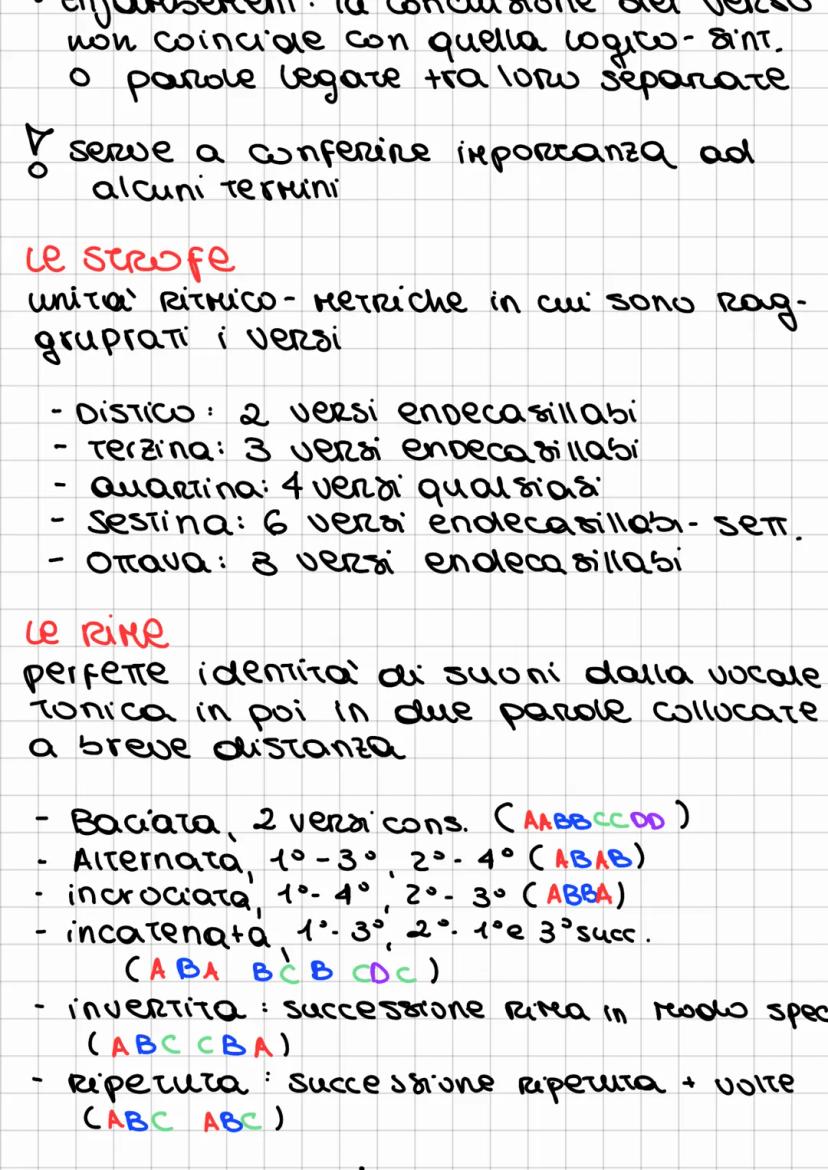 • enjambement: la conclusione del verso
non coincide con quella logico-sint.
o parole legate tra loro separate
! serve a conferire importanza ad
alcuni termini
le strofe
unità ritmico-metriche in cui sono rag-
gruppati i versi
- Distico: 2 versi endecasillabi
- Terzina: 3 versi endecasillabi
- Quartina: 4 versi qualsiasi
- Sestina: 6 versi endecasillabi-sett.
- Ottava: 8 versi endecasillabi
le rime
perfette identità di suoni dalla vocale
tonica in poi in due parole collocate
a breve distanza
- Baciata, 2 versi cons. (AABBCCDD)
- Alternata, 1°-3°, 2°-4° (ABAB)
- incrociata, 1°-4°, 2°-3° (ABBA)
- incatenata, 1°-3°, 2°-1° e 3° succ.
(ABA BCB CDC)
- invertita: successione rima in modo spec
(ABC CBA)
- ripetuta: successione ripetuta + volte
(ABC ABC)